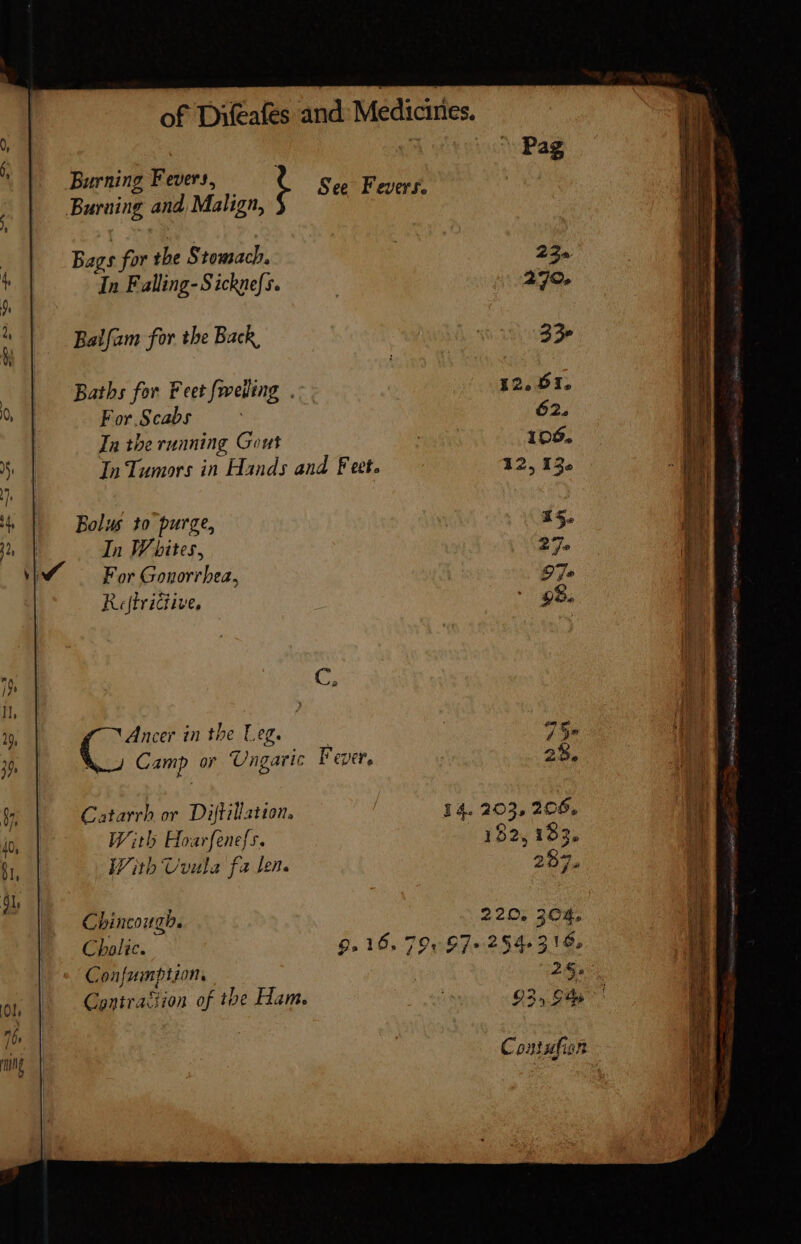 of Difeafes and Medicines.
Pag
Burning Fevers, } See Fevers.
Burning and Malign,
Bags for the Stomach. 23.
In Falling-Sicknefs. 270.
Balfam for the Back, 33.
Baths for Feet fwelling 12. 61.
For Scabs 62.
In the running Gout 106.
In Tumors in Hands and Feet. 12, 13.
Bolus to purge, 15.
In Whites, 27.
For Gonorrhea, 97.
Reftrictive. 98.
C.
CAncer in the Leg. 75.
Camp or Ungaric Fever. 28.
Catarrh or Diftillation. 14. 203, 206.
With Hoarfenefs. 182, 183.
With Uvula fa len. 287.
Chincough. 220. 304.
Cholic. 9. 16. 79. 97. 254. 316.
Confumption. 25.
Contraction of the Ham. 93, 94.
Contufion